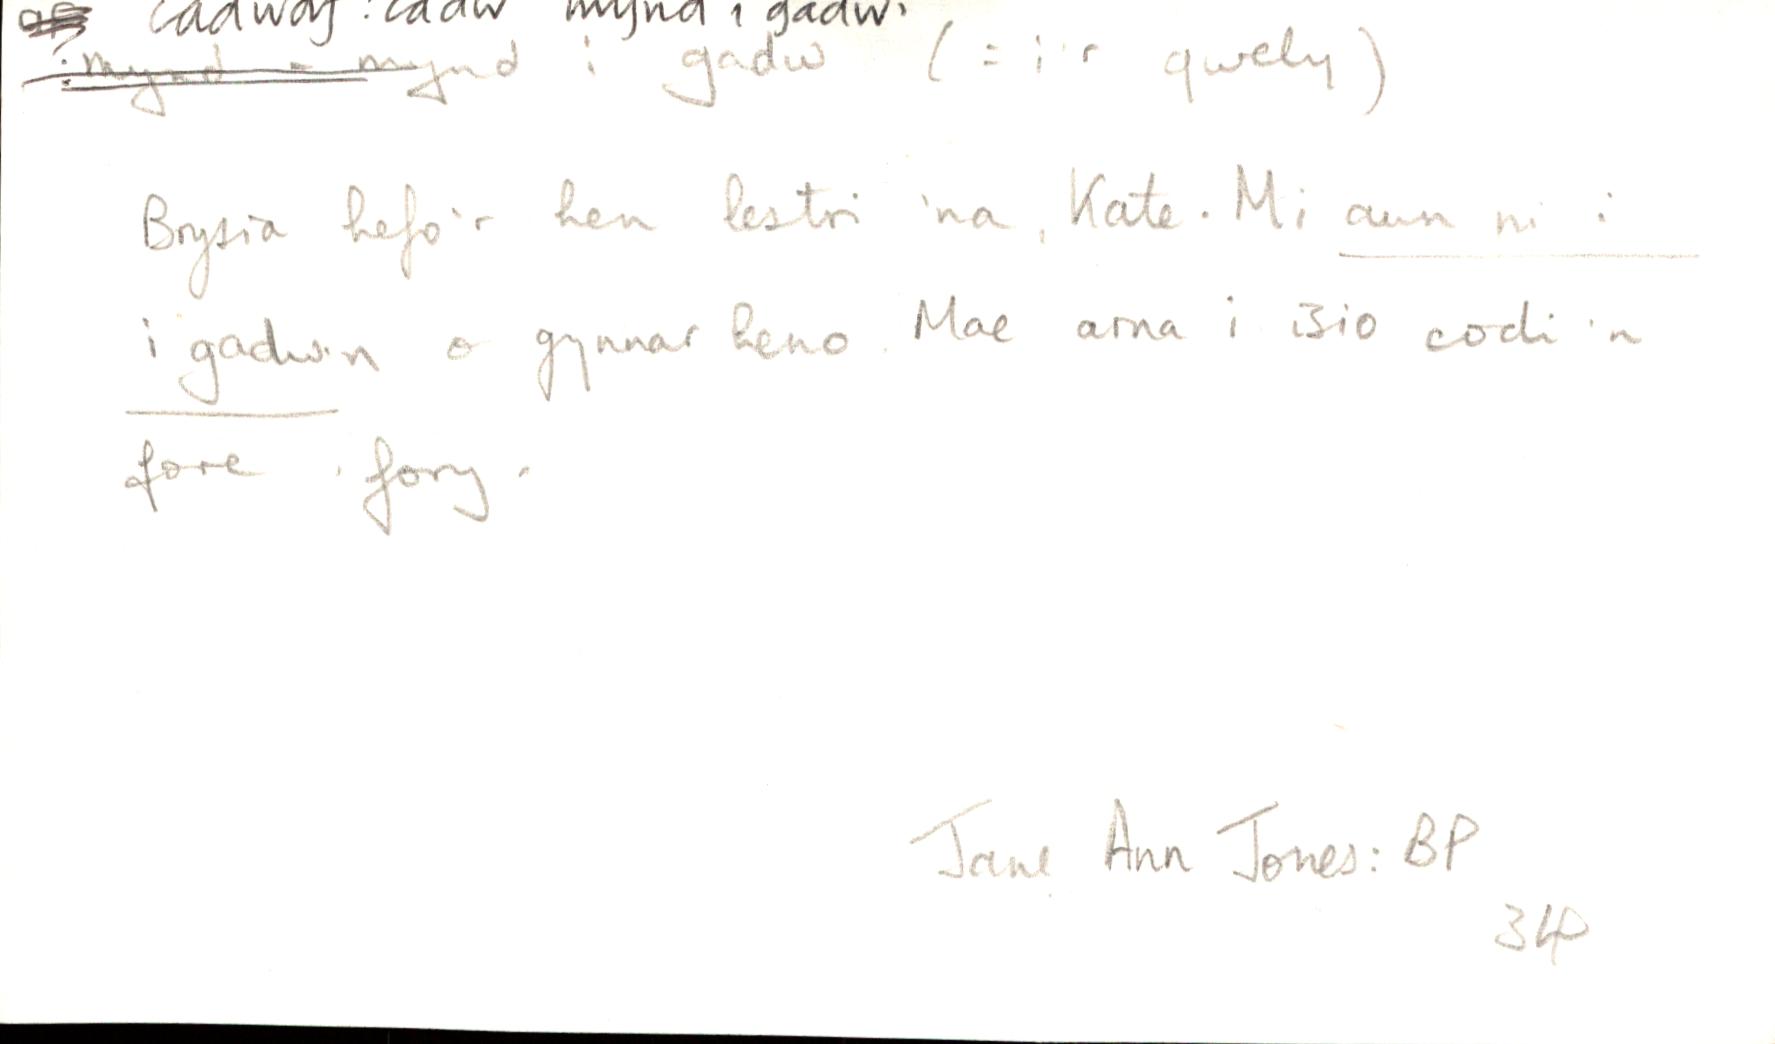 cadwaf: cadw mynd i gadw.
: mynd - mynd i gadw ( = i'r gwely)
Brysia hefo'r hen lestri 'na, Kate. Mi awn ni i
i gadw'n o gynnar heno. Mae arna i isio codi'n
fore fory.
Jane Ann Jones: BP
34